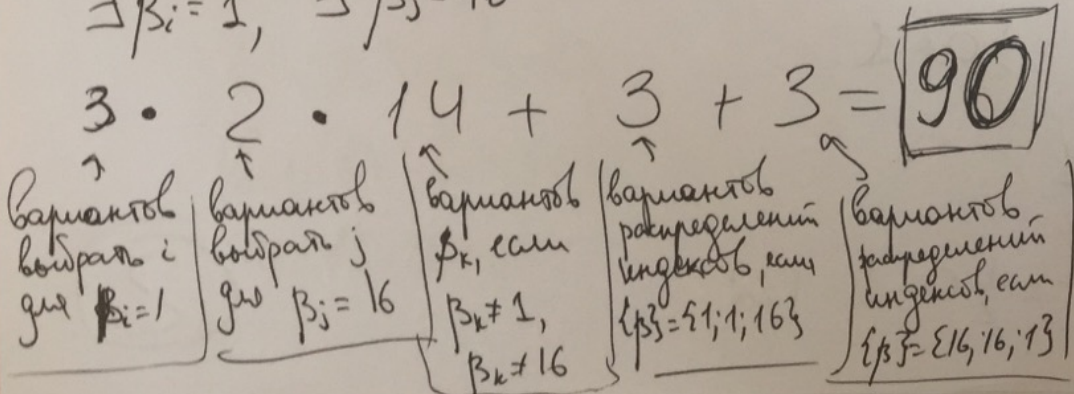 ∃ βi = 1, ∃ βj = 16
3 · 2 · 14 + 3 + 3 = 90
вариантов
выбрать i
для βi = 1
вариантов
выбрать j
для βj = 16
вариантов
βk, если
βk ≠ 1,
βk ≠ 16
вариантов
распределений
индексов, если
{β} = {1; 1; 16}
вариантов
распределений
индексов, если
{β} = {16; 16; 1}